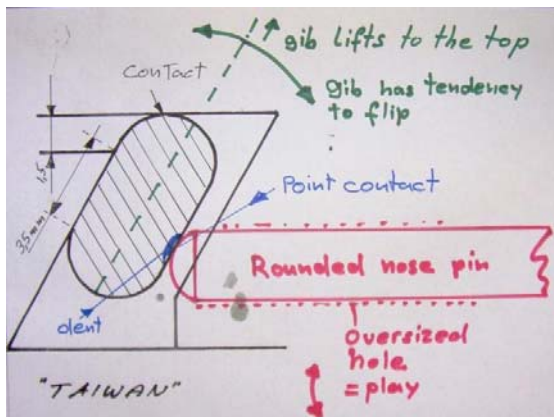 gib lifts to the top
contact
gib has tendency
to flip
1,5
3,5mm
Point contact
Rounded nose pin
dent
oversized
hole
= play
"TAIWAN"